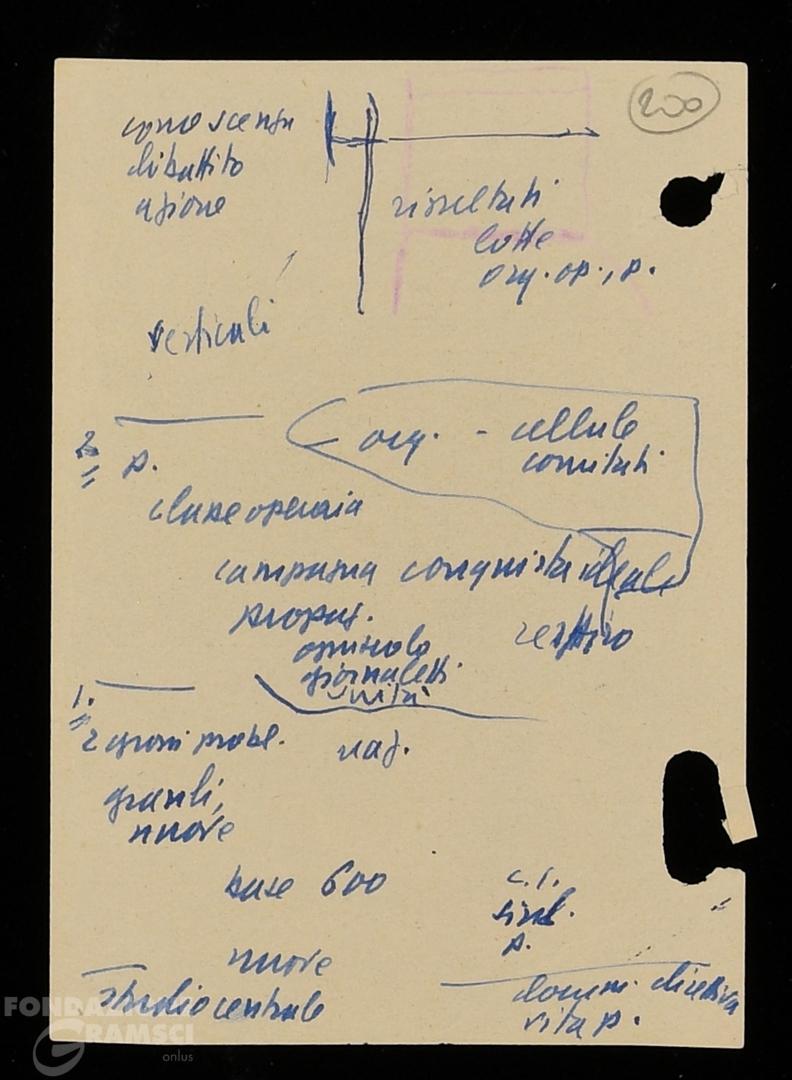 200
conoscenza
dibattito
azione
risultati
lotte
org. op., p.
verticali
org. - cellule
comitati
2
p.
classe operaia
campagna conquista ideale
propag.
opuscolo
giornaletti
unità
1.
2 grossi probl.
rag.
grandi,
nuove
base 600
c.i.
sind.
p.
nuove
studio centrale
docum. direttiva
vita p.
FONDAZIONE
GRAMSCI
onlus